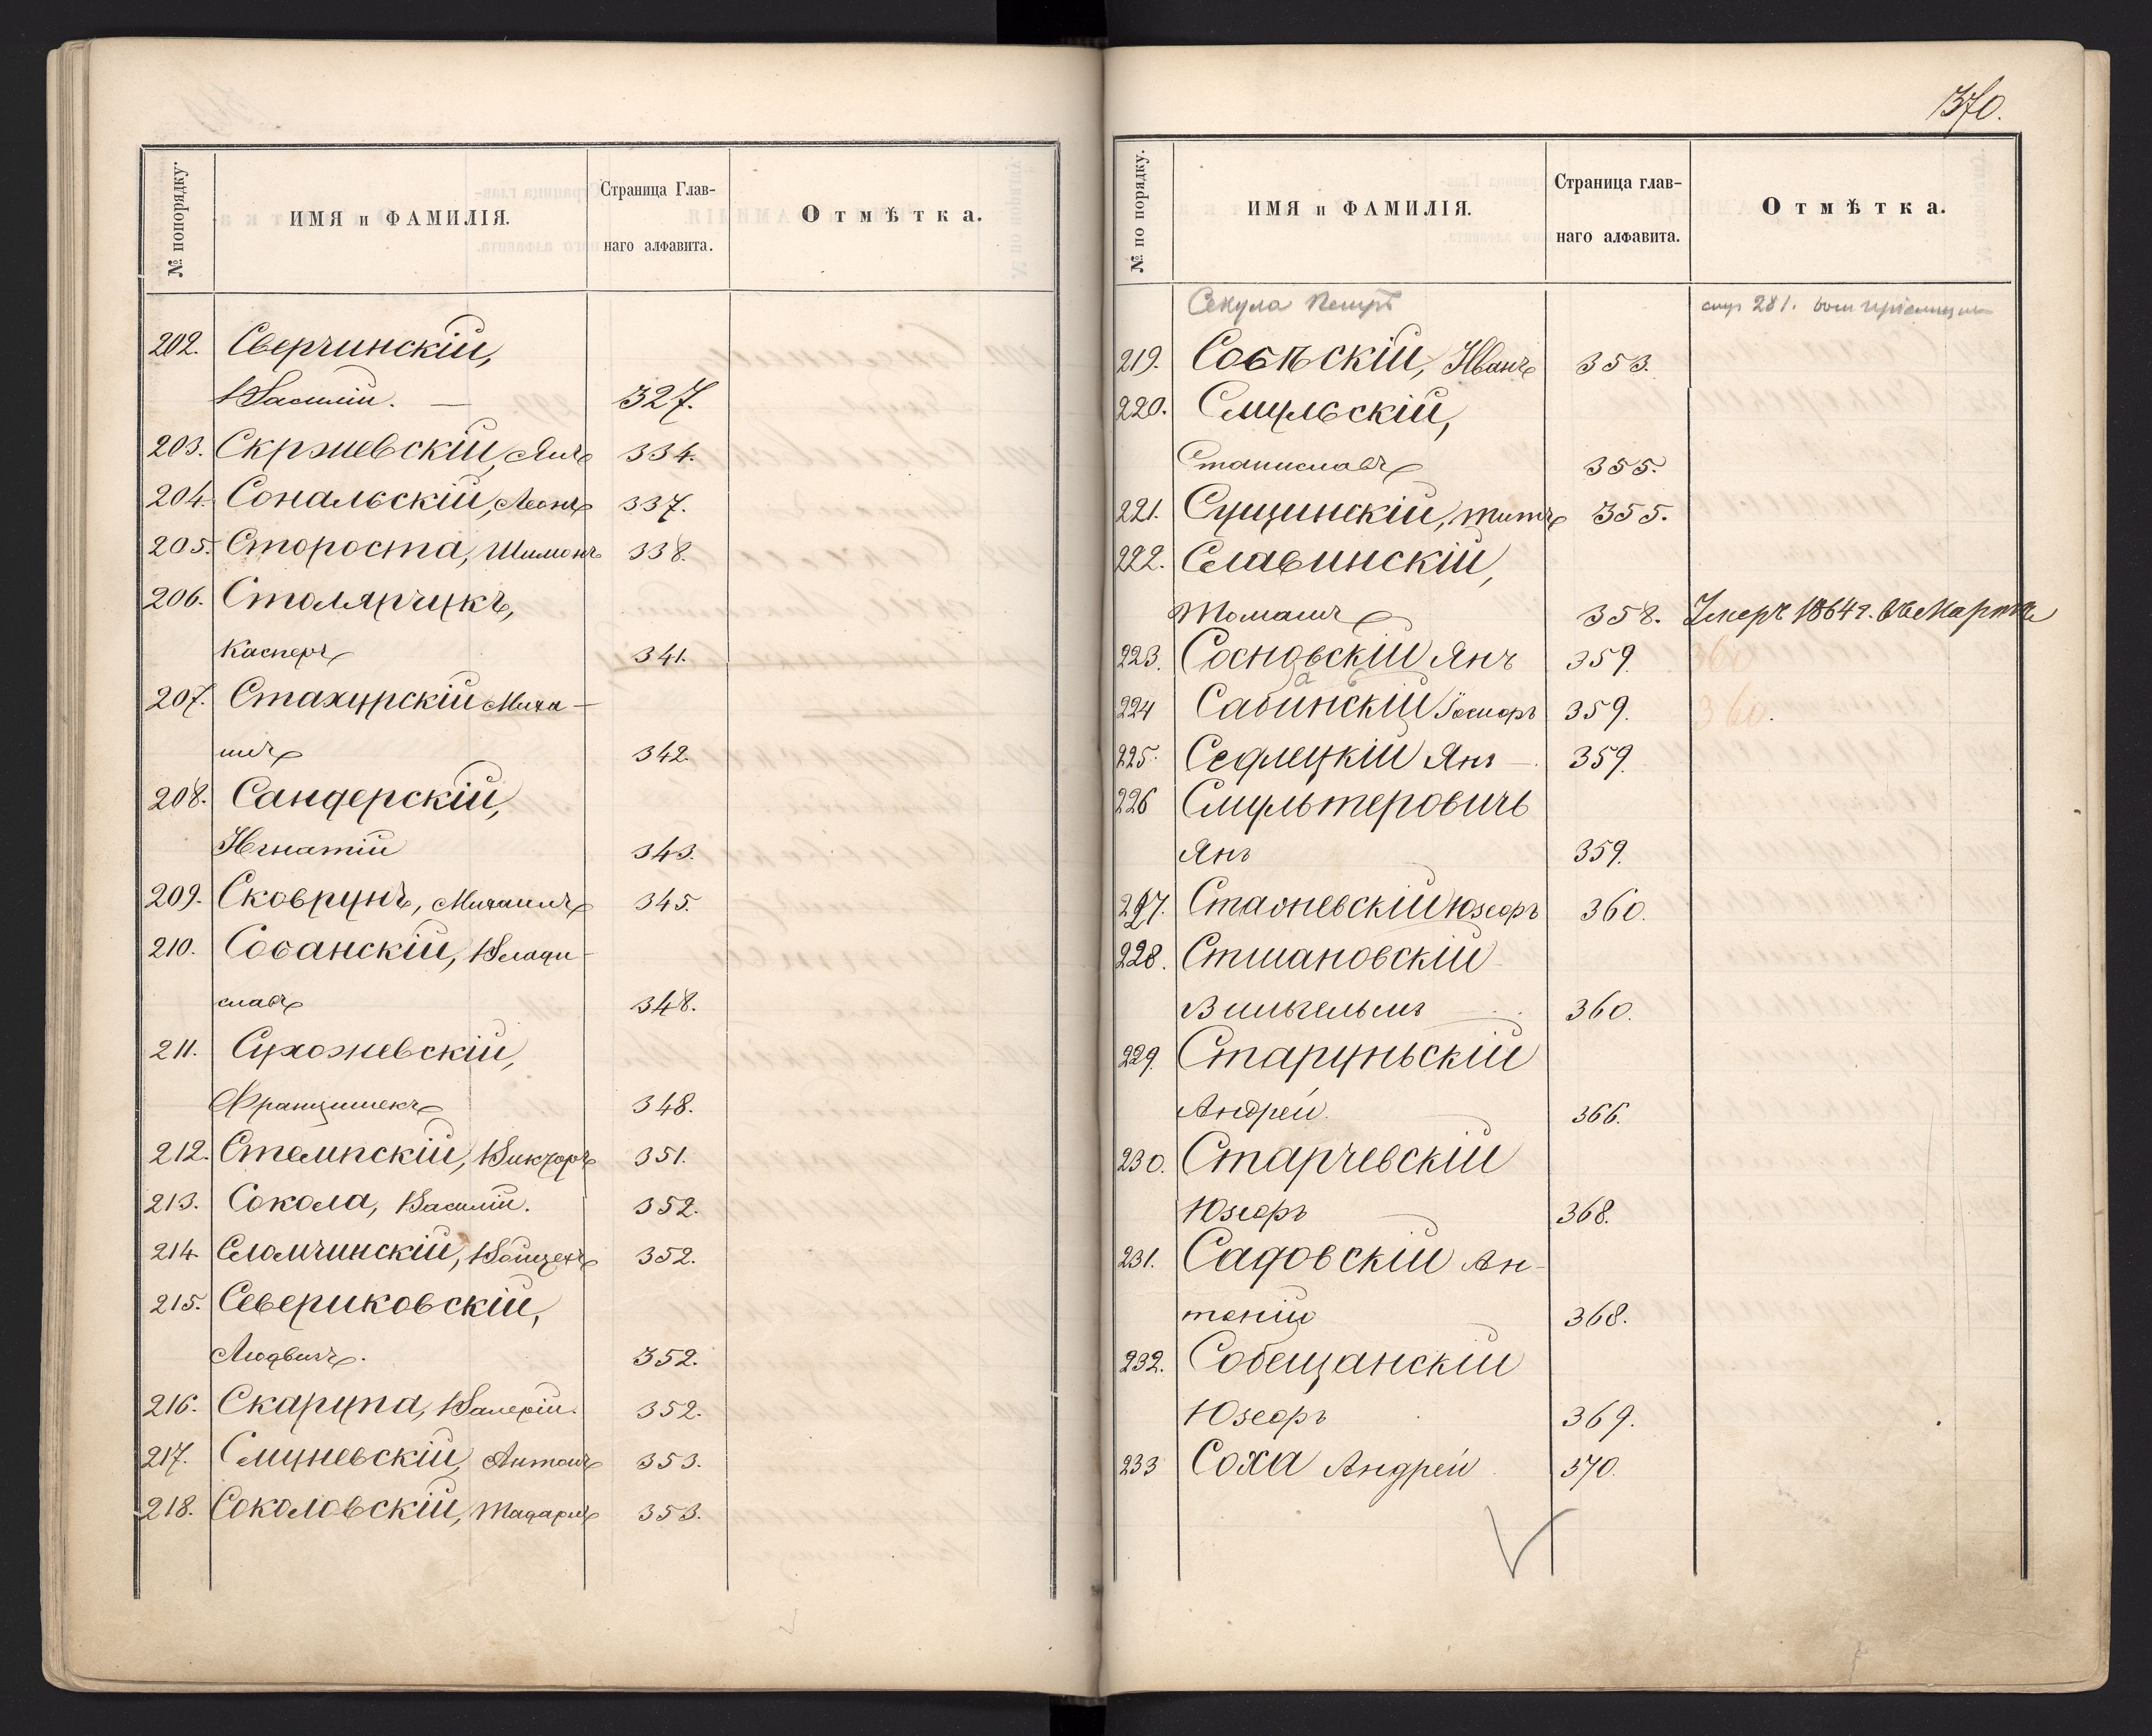 № попорядку.
ИМЯ и ФАМИЛІЯ.
Страница Глав-
наго алфавита.
Отмѣтка.
202. Сверчинскій,
Василій. — 327.
203. Скржевскій, Янъ 334.
204. Сональскій, Леонъ 337.
205. Стороста, Шимонъ 338.
206. Столярчукъ,
Касперъ 341.
207. Стахурскій Миха-
илъ 342.
208. Сандерскій,
Игнатій 343.
209. Сковрунъ, Михаилъ 345.
210. Собанскій, Влади-
славъ 348.
211. Сухожевскій,
Францишекъ 348.
212. Стемпскій, Викторъ 351.
213. Сокола, Василій. 352.
214. Сломчинскій, Войцехъ 352.
215. Севериковскій,
Людвигъ. 352.
216. Скарупа, Валерій. 352.
217. Смуневскій, Антонъ 353.
218. Соколовскій, 353.
370.
№ по порядку.
ИМЯ и ФАМИЛІЯ.
Страница глав-
наго алфавита.
Отмѣтка.
Секула Петръ 281.
219. Собѣскій, Иванъ 353.
220. Смульскій,
Станиславъ 355.
221. Сущинскій, Титъ 355.
222. Славинскій,
Томашъ 358. Умеръ 1864 г. въ Мартѣ
223. Сосновскій Янъ 359. 360
224 Сабинскій 359. 360.
225. Седлецкій Янъ — 359.
226 Смультеровичъ
Янъ 359.
227. Стабневскій Юзефъ 360.
228. Стшановскій
Вильгельмъ 360.
229. Старуньскій
Андрей. 366.
230. Старчевскій
Юзефъ 368.
231. Садовскій Ан-
тоній 368.
232. Собещанскій
Юзефъ 369.
233 Соха Андрей 370.